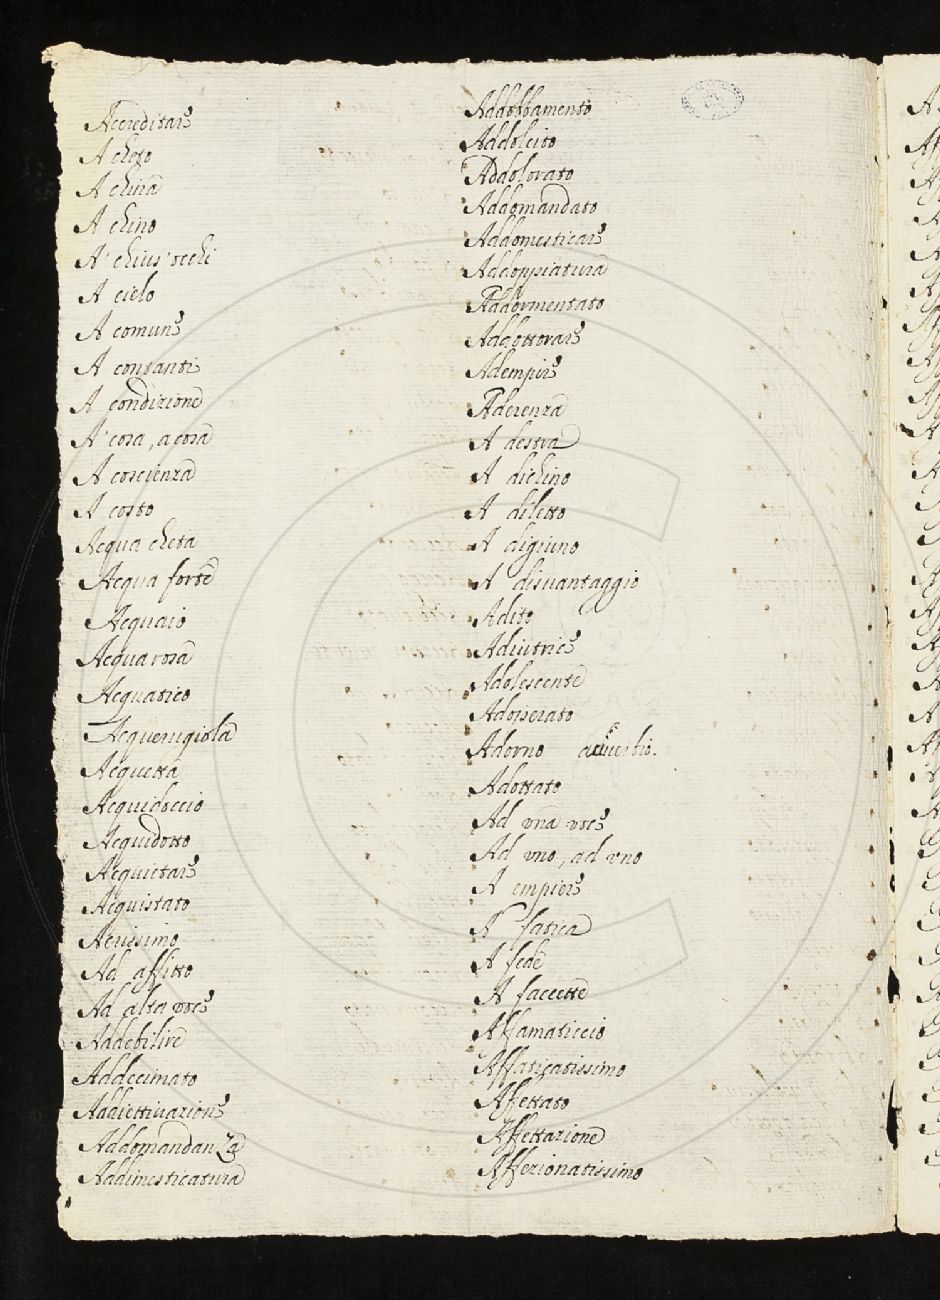 Accreditare
A cheto
A china
A chino
A chius'occhi
A cielo
A comune
A contanti
A condizione
A cosa, a cosa
A coscienza
A costo
Acqua cheta
Acqua forte
Acquaio
Acqua rosa
Acquatico
Acquerugiola
Acquetta
Acquidoccio
Acquidotto
Acquietare
Acquistato
Acrissimo
Ad affitto
Ad alta voce
Addebilire
Addecimato
Addiettivazione
Addomandanza
Addimesticatura
Addobbamento
Addolcito
Addolorato
Addomandato
Addomesticare
Addoppiatura
Addormentato
Addottorare
Adempire
Aderenza
A destra
A dichino
A diletto
A digiuno
A disvantaggio
Adito
Adiutrice
Adolescente
Adoperato
Adorno
Adottato
Ad una voce
Ad uno, ad uno
A empiere
A fatica
A fede
A faccette
Affamaticcio
Affaticatissimo
Affettato
Affettazione
Affezionatissimo